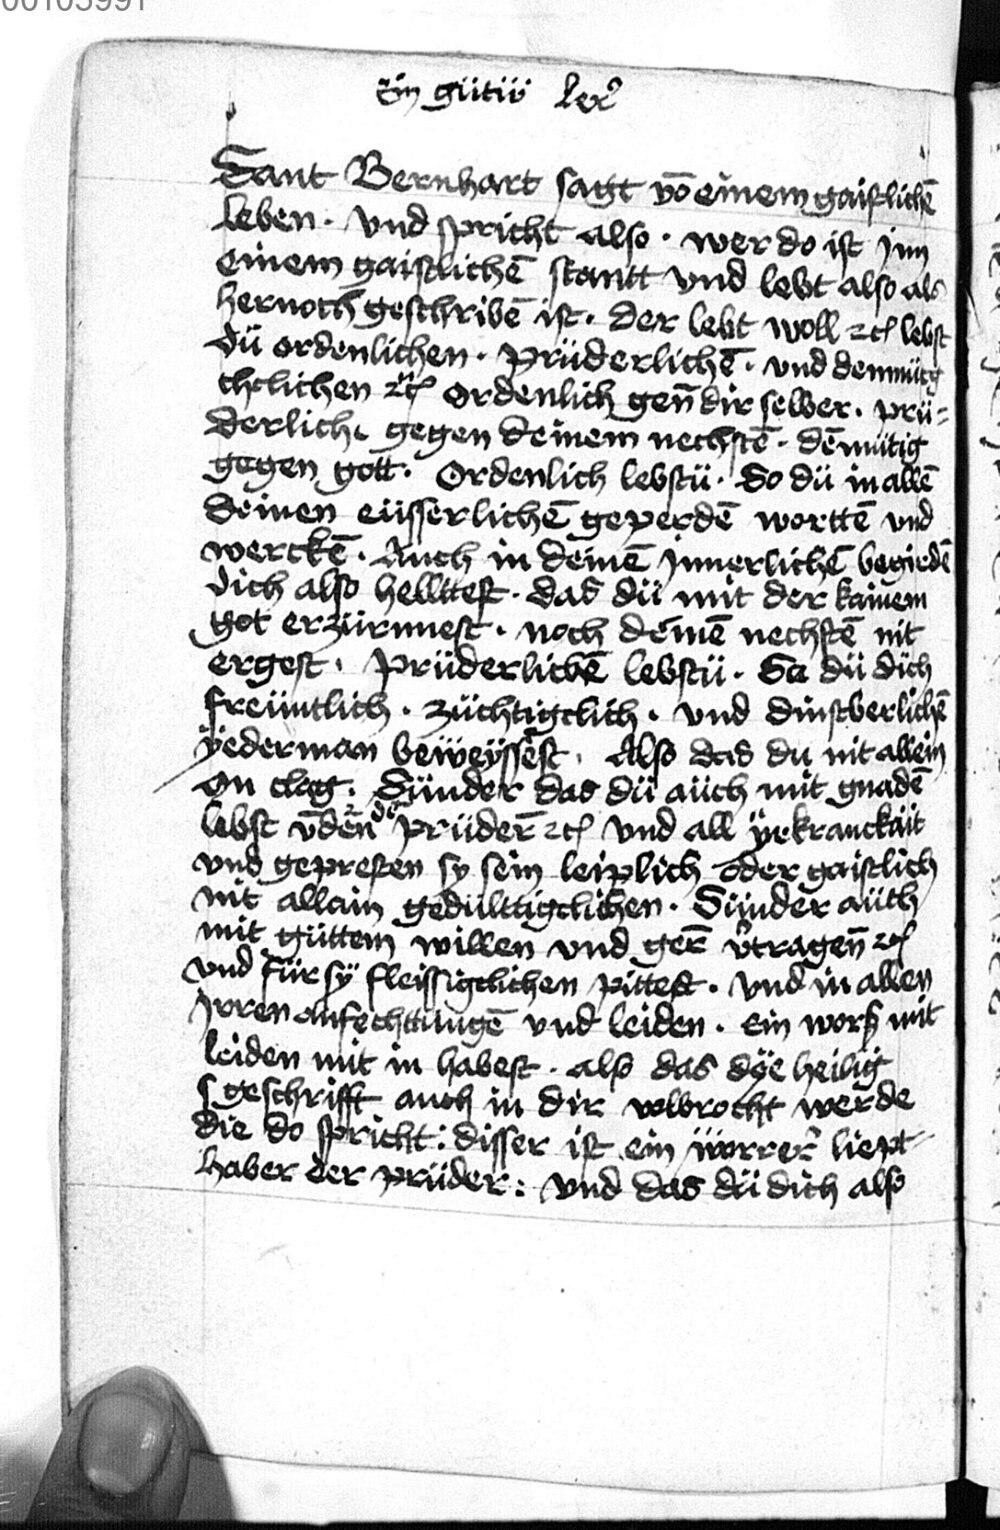 00103991
Ein gütiü ler᷎
Sant Bernhart sagt vō einem gaistlichē
leben · vnd spricht also · wer do ist jnn
einem gaistlichē stantt vnd lebt also als
hernoch geschribē ist · der lebt woll ⁊c̃ lebst
dü ordenlichen · prüderlichē · vnd demmütg
chclichen ⁊c̃ ordenlich gen̄ dir selber · prü⸗
derlich · gegen deinem nechstē · dēmütig
gegen gott · Ordenlich lebstü · So dü in allē
deinen eüsserlichē geperdē worttē vnd
werckē · Auch in deinē jnnerlichē begirdē
dich also helltest · das dü mit der kainem
got erzürnnest · noch deinē nechstē nit
ergest · Prüderlichē lebstü · Sa dü dich
freüntlich · züchtigclich · vnd dinstberlichē
yederman beweÿssest · Also das du nit allein
on clag · Sünder das dü aüch mit gnadē
lebst v̄den̄ prüder̄ ⁊c̃ vnd all yrkranckait
vnd gepresten sy sein leiplich oder gaistlich
nit allain gedülttigclichen · Sünder aüch
mit güttem willen vnd ger̄ v᷎tragen̄ ⁊c̃
vnd für sÿ fleissigclichen pittest · vnd in allen
jrren anfechttungē vnd leiden · ein wors mit
leiden mit in habest · also das dÿe heilig
geschrifft auch in dir volbrocht werde
die do spricht : disser ist ein worrer᷎ liept⸗
haber der prüder : vnd das dü dich also